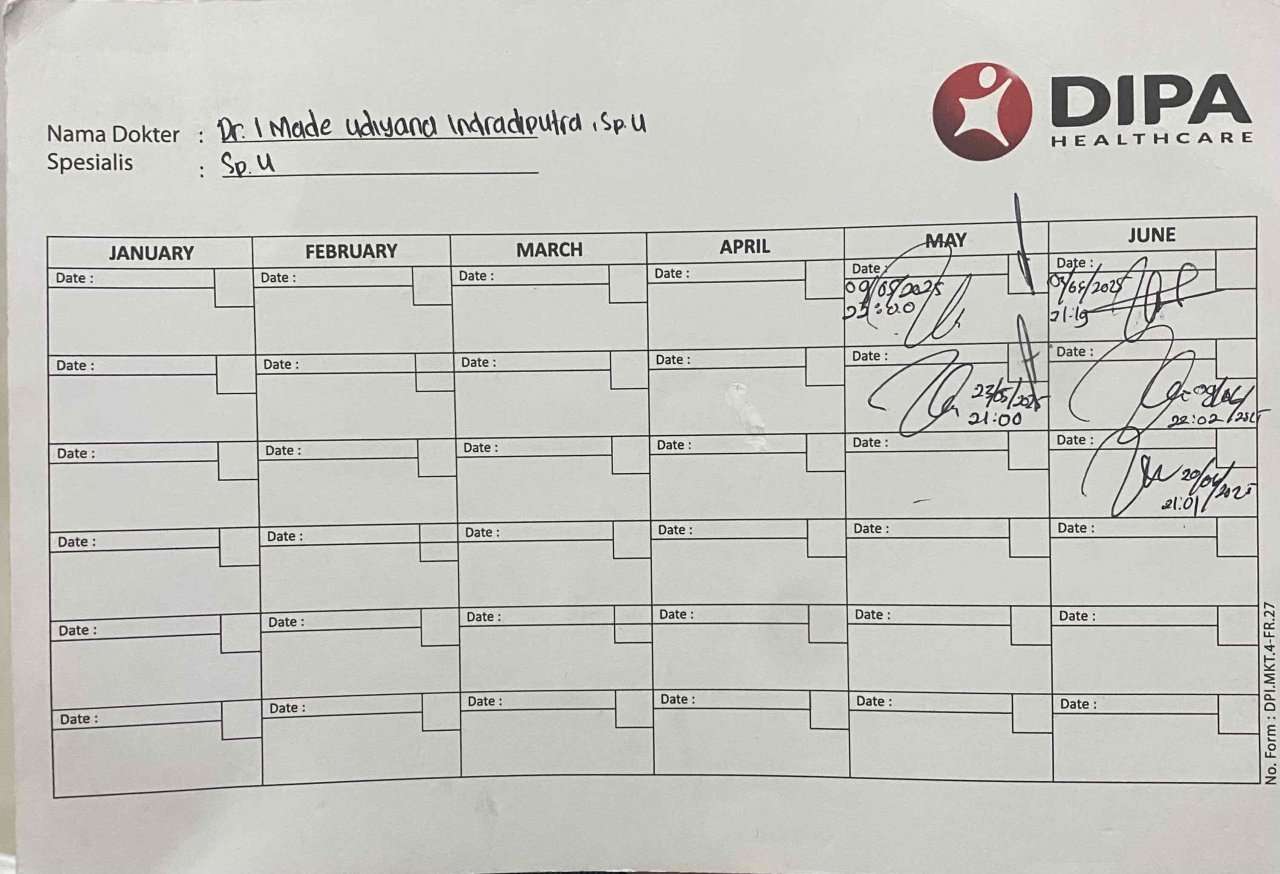 DIPA
HEALTHCARE
Nama Dokter : Dr. I Made Udiyana Indradiputra, Sp.U
Spesialis : Sp.U
JANUARY FEBRUARY MARCH APRIL MAY JUNE
Date : Date : Date : Date : Date : Date :
09/05/2025 03/05/2025
23:00 21:19
Date : Date : Date : Date : Date : Date :
23/05/2025 09/06/2025
21:00 22:02
Date : Date : Date : Date : Date : Date :
20/06/2025
21:01
Date : Date : Date : Date : Date : Date :
Date : Date : Date : Date : Date : Date :
Date : Date : Date : Date : Date : Date :
No. Form : DPI.MKT.4-FR.27